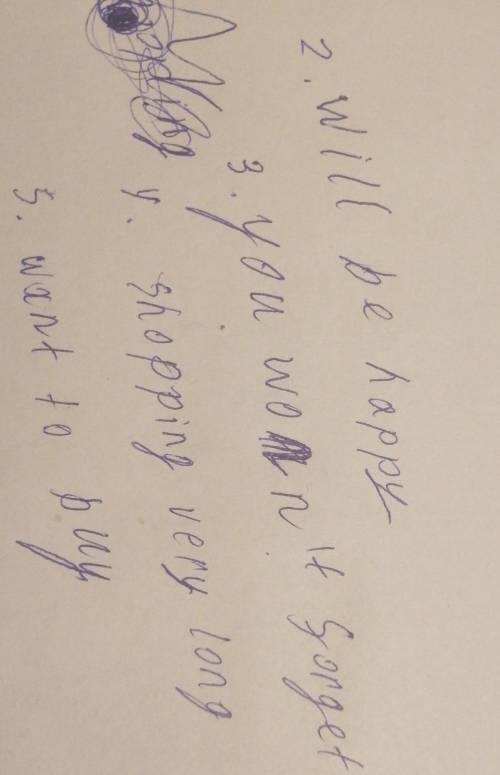 2. will be happy
3. you won't forget
4. shopping very long
5. want to buy